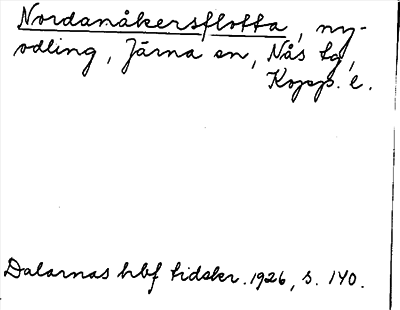 Nordanåkersflotta, ny-
odling, Järna sn, Nås tg,
Kopp. l.
Dalarnas hbf tidskr. 1926, s. 140.